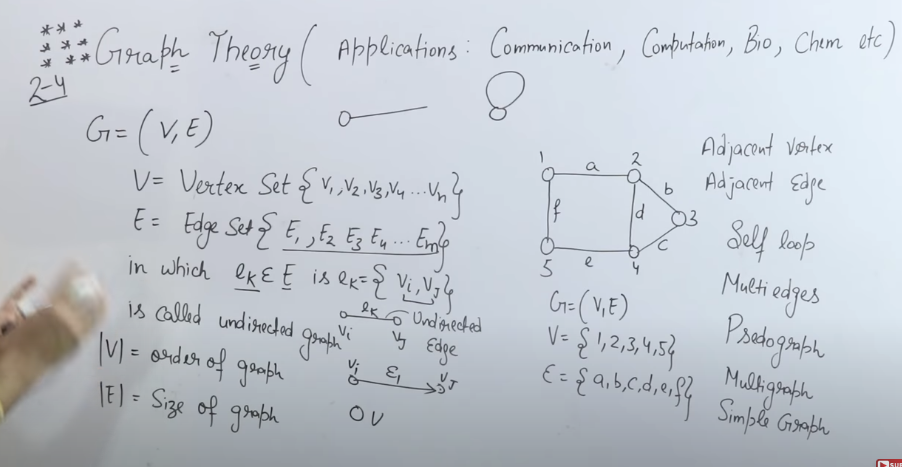 *** *** ***
Graph Theory ( Applications: Communication, Computation, Bio, Chem etc)
2-4
G = (V, E)
V = Vertex Set { V1, V2, V3, V4 ... Vn}
E = Edge Set { E1, E2 E3 E4 ... Em}
in which eK ε E is eK = { Vi, VJ}
is called undirected graph
|V| = order of graph
|E| = Size of graph
eK
Vi VJ
Undirected
Edge
Vi E1 VJ
V
1 a 2
b
f d 3
c
5 e 4
G = (V, E)
V = {1, 2, 3, 4, 5}
E = {a, b, c, d, e, f}
Adjacent Vertex
Adjacent Edge
Self loop
Multi edges
Psedograph
Multigraph
Simple Graph